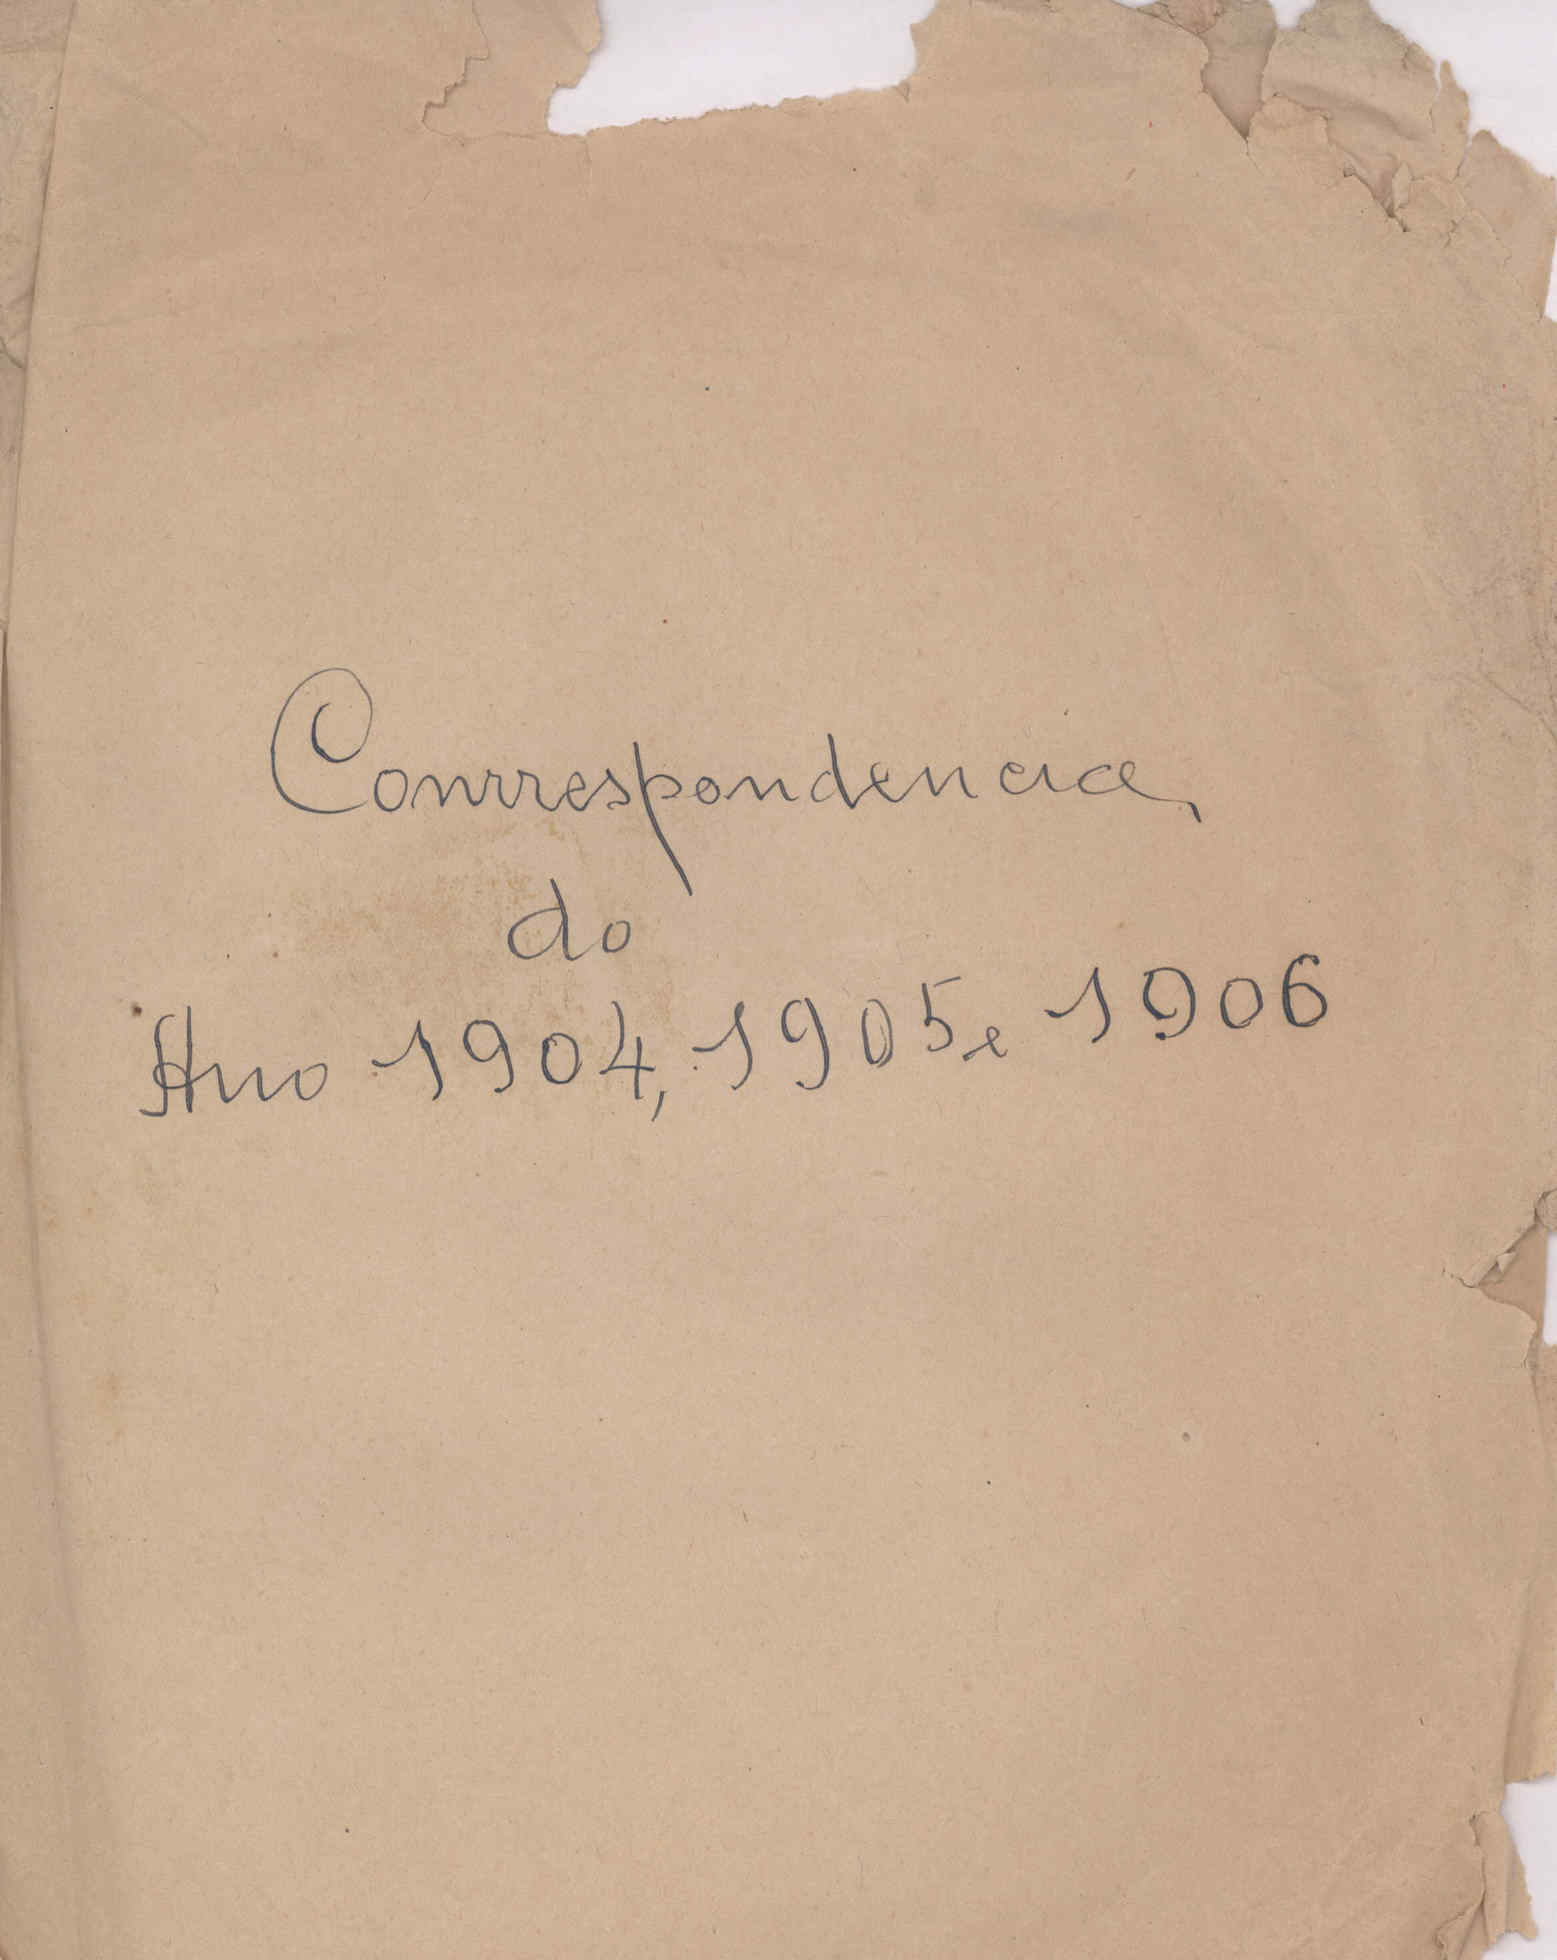 Conrrespondencia
do
Ano 1904, 1905 e 1906